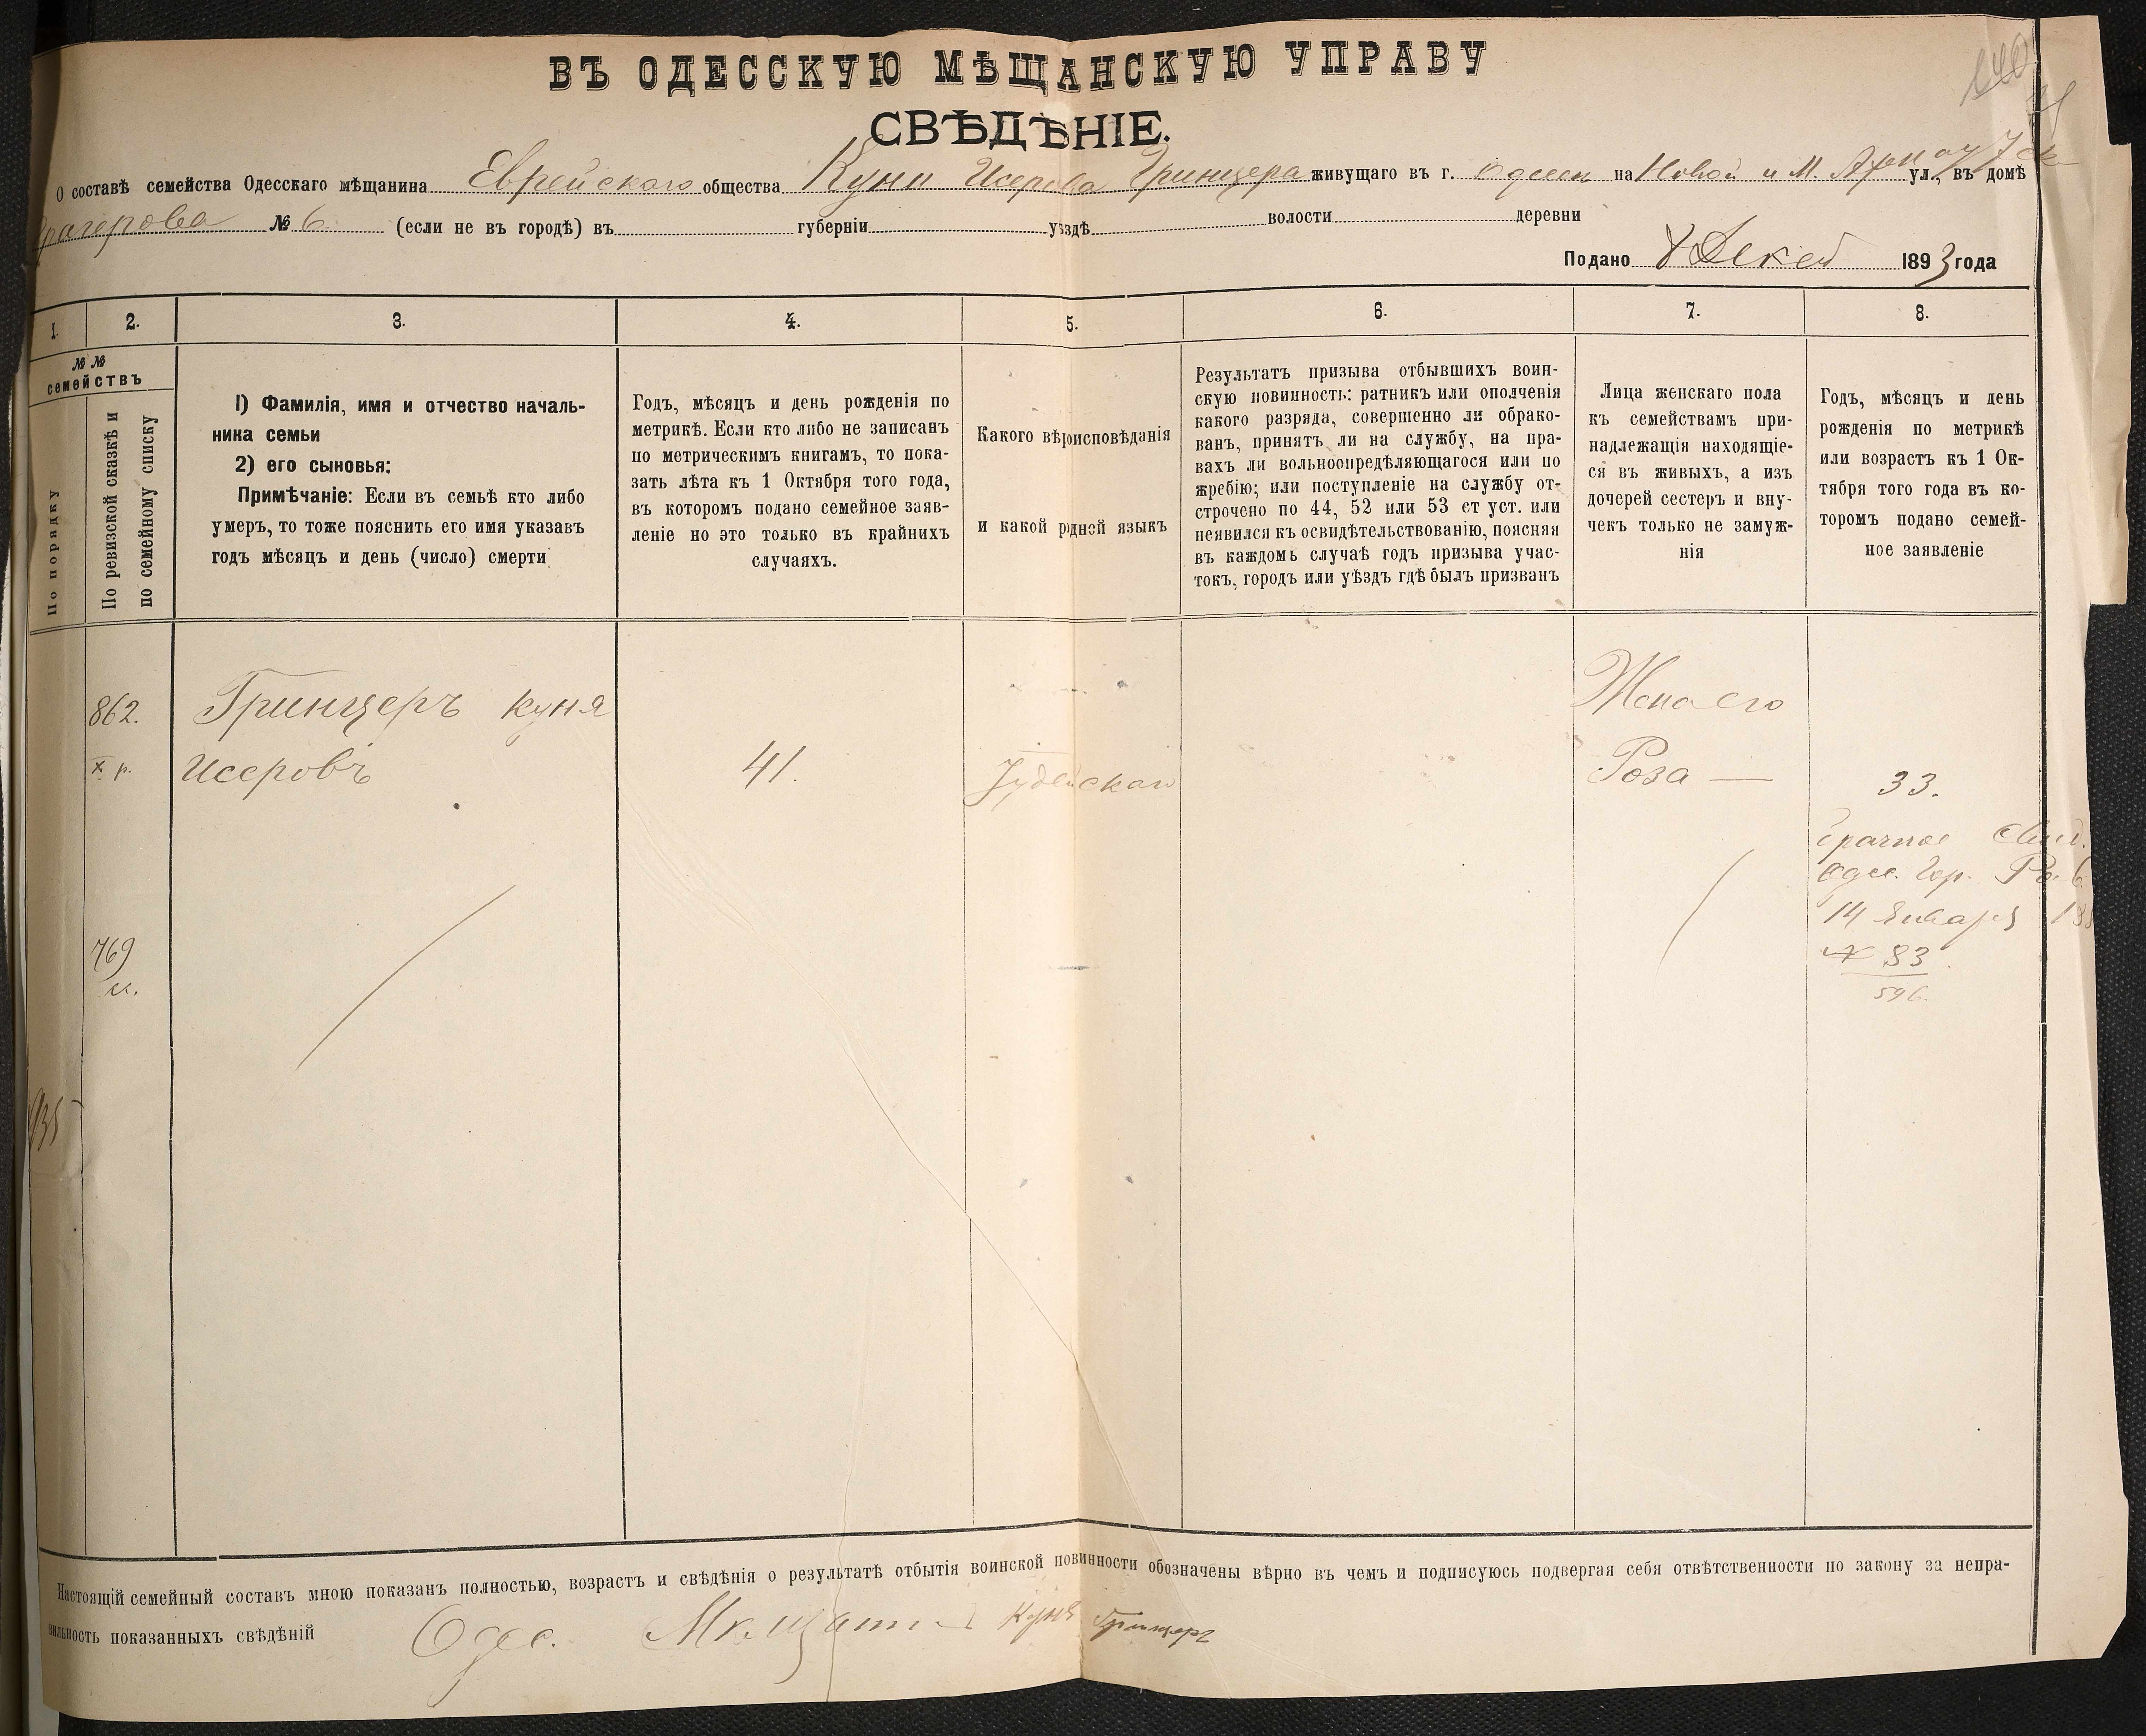 ВЪ ОДЕССКУЮ МѢЩАНСКУЮ УПРАВУ
СВѢДѢНІЕ.
О составѣ семейства Одесскаго мѣщанина Еврейскаго общества Куни Исерова Гринцера живущаго въ г. Одессѣ на Новой и М. Арнаутск ул., въ домѣ
№ 6. (если не въ городѣ) въ губерніи уѣздѣ волости деревни
Подано 8 Декаб 1893 года
1. 2. 3. 4. 5. 6. 7. 8.
№ №
семействъ
По порядку
По ревизской сказкѣ и
по семейному списку
1) Фамилія, имя и отчество началь-
ника семьи
2) его сыновья:
Примѣчаніе: Если въ семьѣ кто либо
умеръ, то тоже пояснить его имя указавъ
годъ мѣсяцъ и день (число) смерти
Годъ, мѣсяцъ и день рожденія по
метрикѣ. Если кто либо не записанъ
по метрическимъ книгамъ, то пока-
зать лѣта къ 1 Октября того года,
въ которомъ подано семейное заяв-
леніе но это только въ крайнихъ
случаяхъ.
Какого вѣроисповѣданія
и какой родной языкъ
Результатъ призыва отбывшихъ воин-
скую повинность: ратникъ или ополченія
какого разряда, совершенно ли обрако-
ванъ, принятъ ли на службу, на пра-
вахъ ли вольноопредѣляющагося или по
жребію; или поступленіе на службу от-
строчено по 44, 52 или 53 ст уст. или
неявился къ освидѣтельствованію, поясняя
въ каждомъ случаѣ годъ призыва учас-
токъ, городъ или уѣздъ гдѣ былъ призванъ
Лица женскаго пола
къ семействамъ при-
надлежащія находящіе-
ся въ живыхъ, а изъ
дочерей сестеръ и вну-
чекъ только не замуж-
нія
Годъ, мѣсяцъ и день
рожденія по метрикѣ
или возрастъ къ 1 Ок-
тября того года въ ко-
торомъ подано семей-
ное заявленіе
862. Гринцеръ Куня Жена его
х р. Исеровъ 41. Іудейскаго Роза — 33.
брачное свид.
Одес. Гор. Раб
14 Января 188
№ 83
596.
769
м.
935
Настоящій семейный составъ мною показанъ полностью, возрастъ и свѣдѣнія о результатѣ отбытія воинской повинности обозначены вѣрно въ чемъ и подписуюсь подвергая себя отвѣтственности по закону за непра-
вильность показанныхъ свѣдѣній
Одес. Мѣщани Куня Гринцеръ